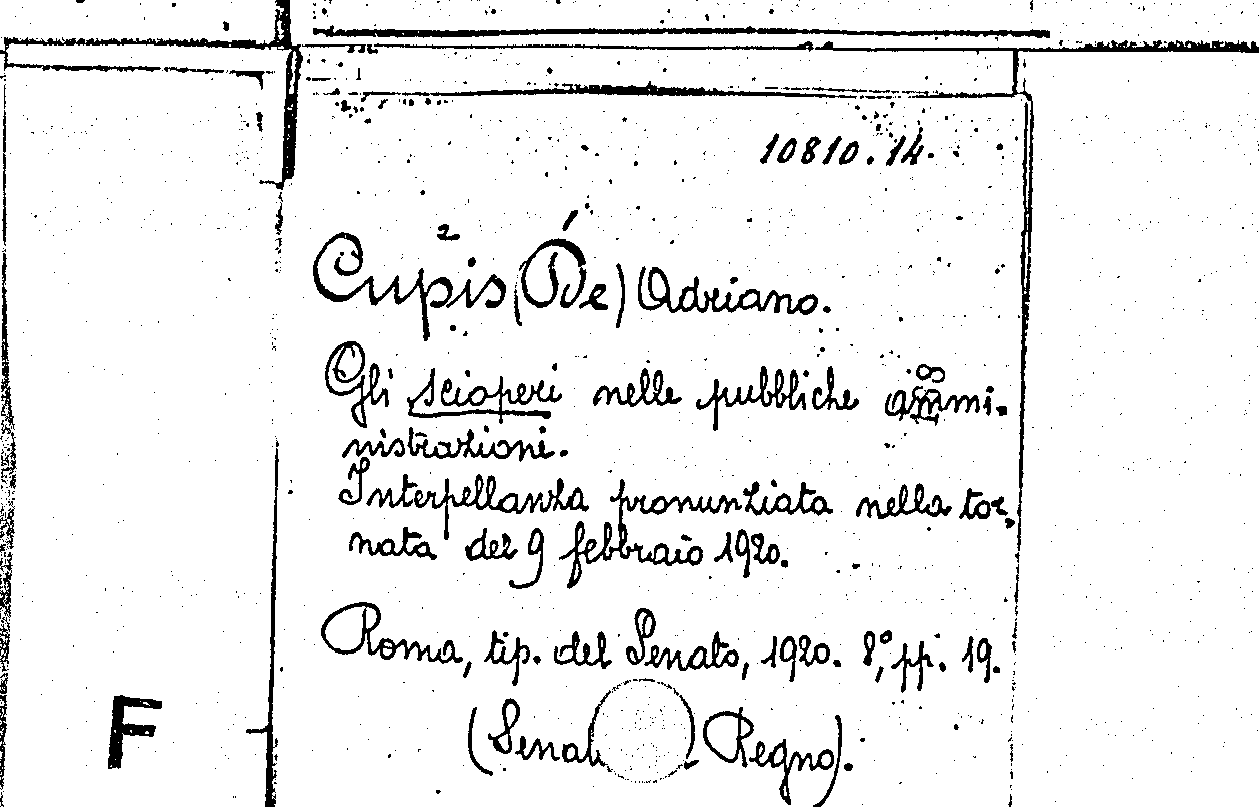 10810.14.
2 1
Cupis (De) Adriano.
Gli scioperi nelle pubbliche ammi-
nistrazioni.
Interpellanza pronunziata nella tor-
nata del 9 febbraio 1920.
Roma, tip. del Senato, 1920. 8°, pp. 19.
(Senat Regno).
F